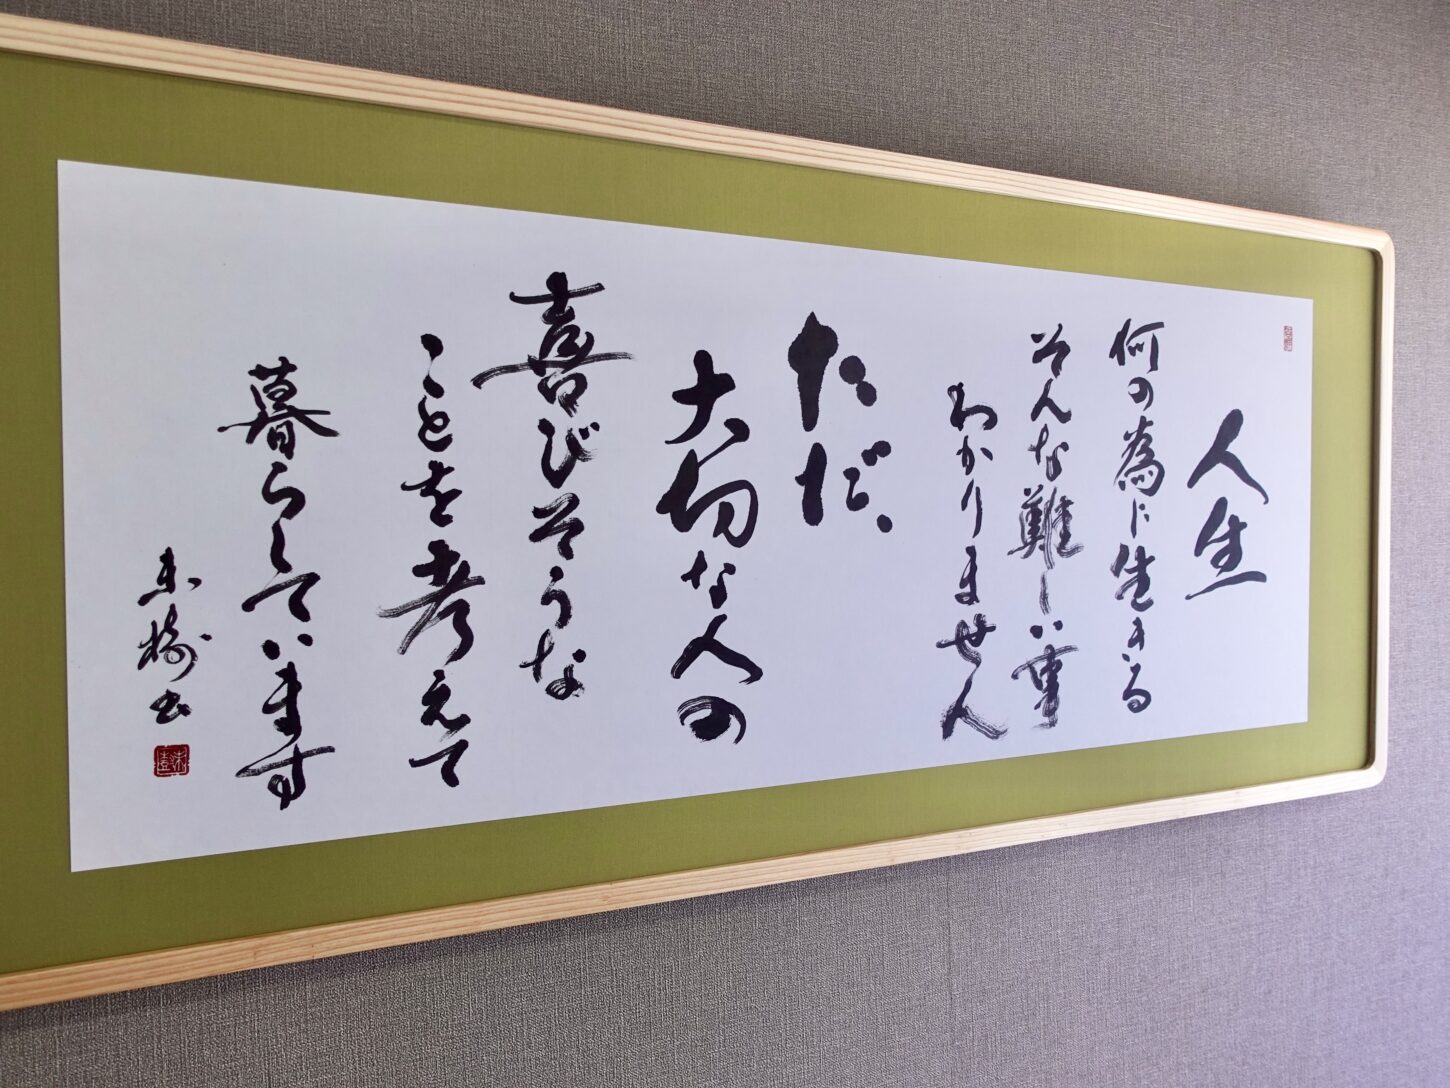 人生
何の為に生きる
そんな難しい事
わかりません
ただ、
大切な人の
喜びそうな
ことを考えて
暮らしています
未樹書